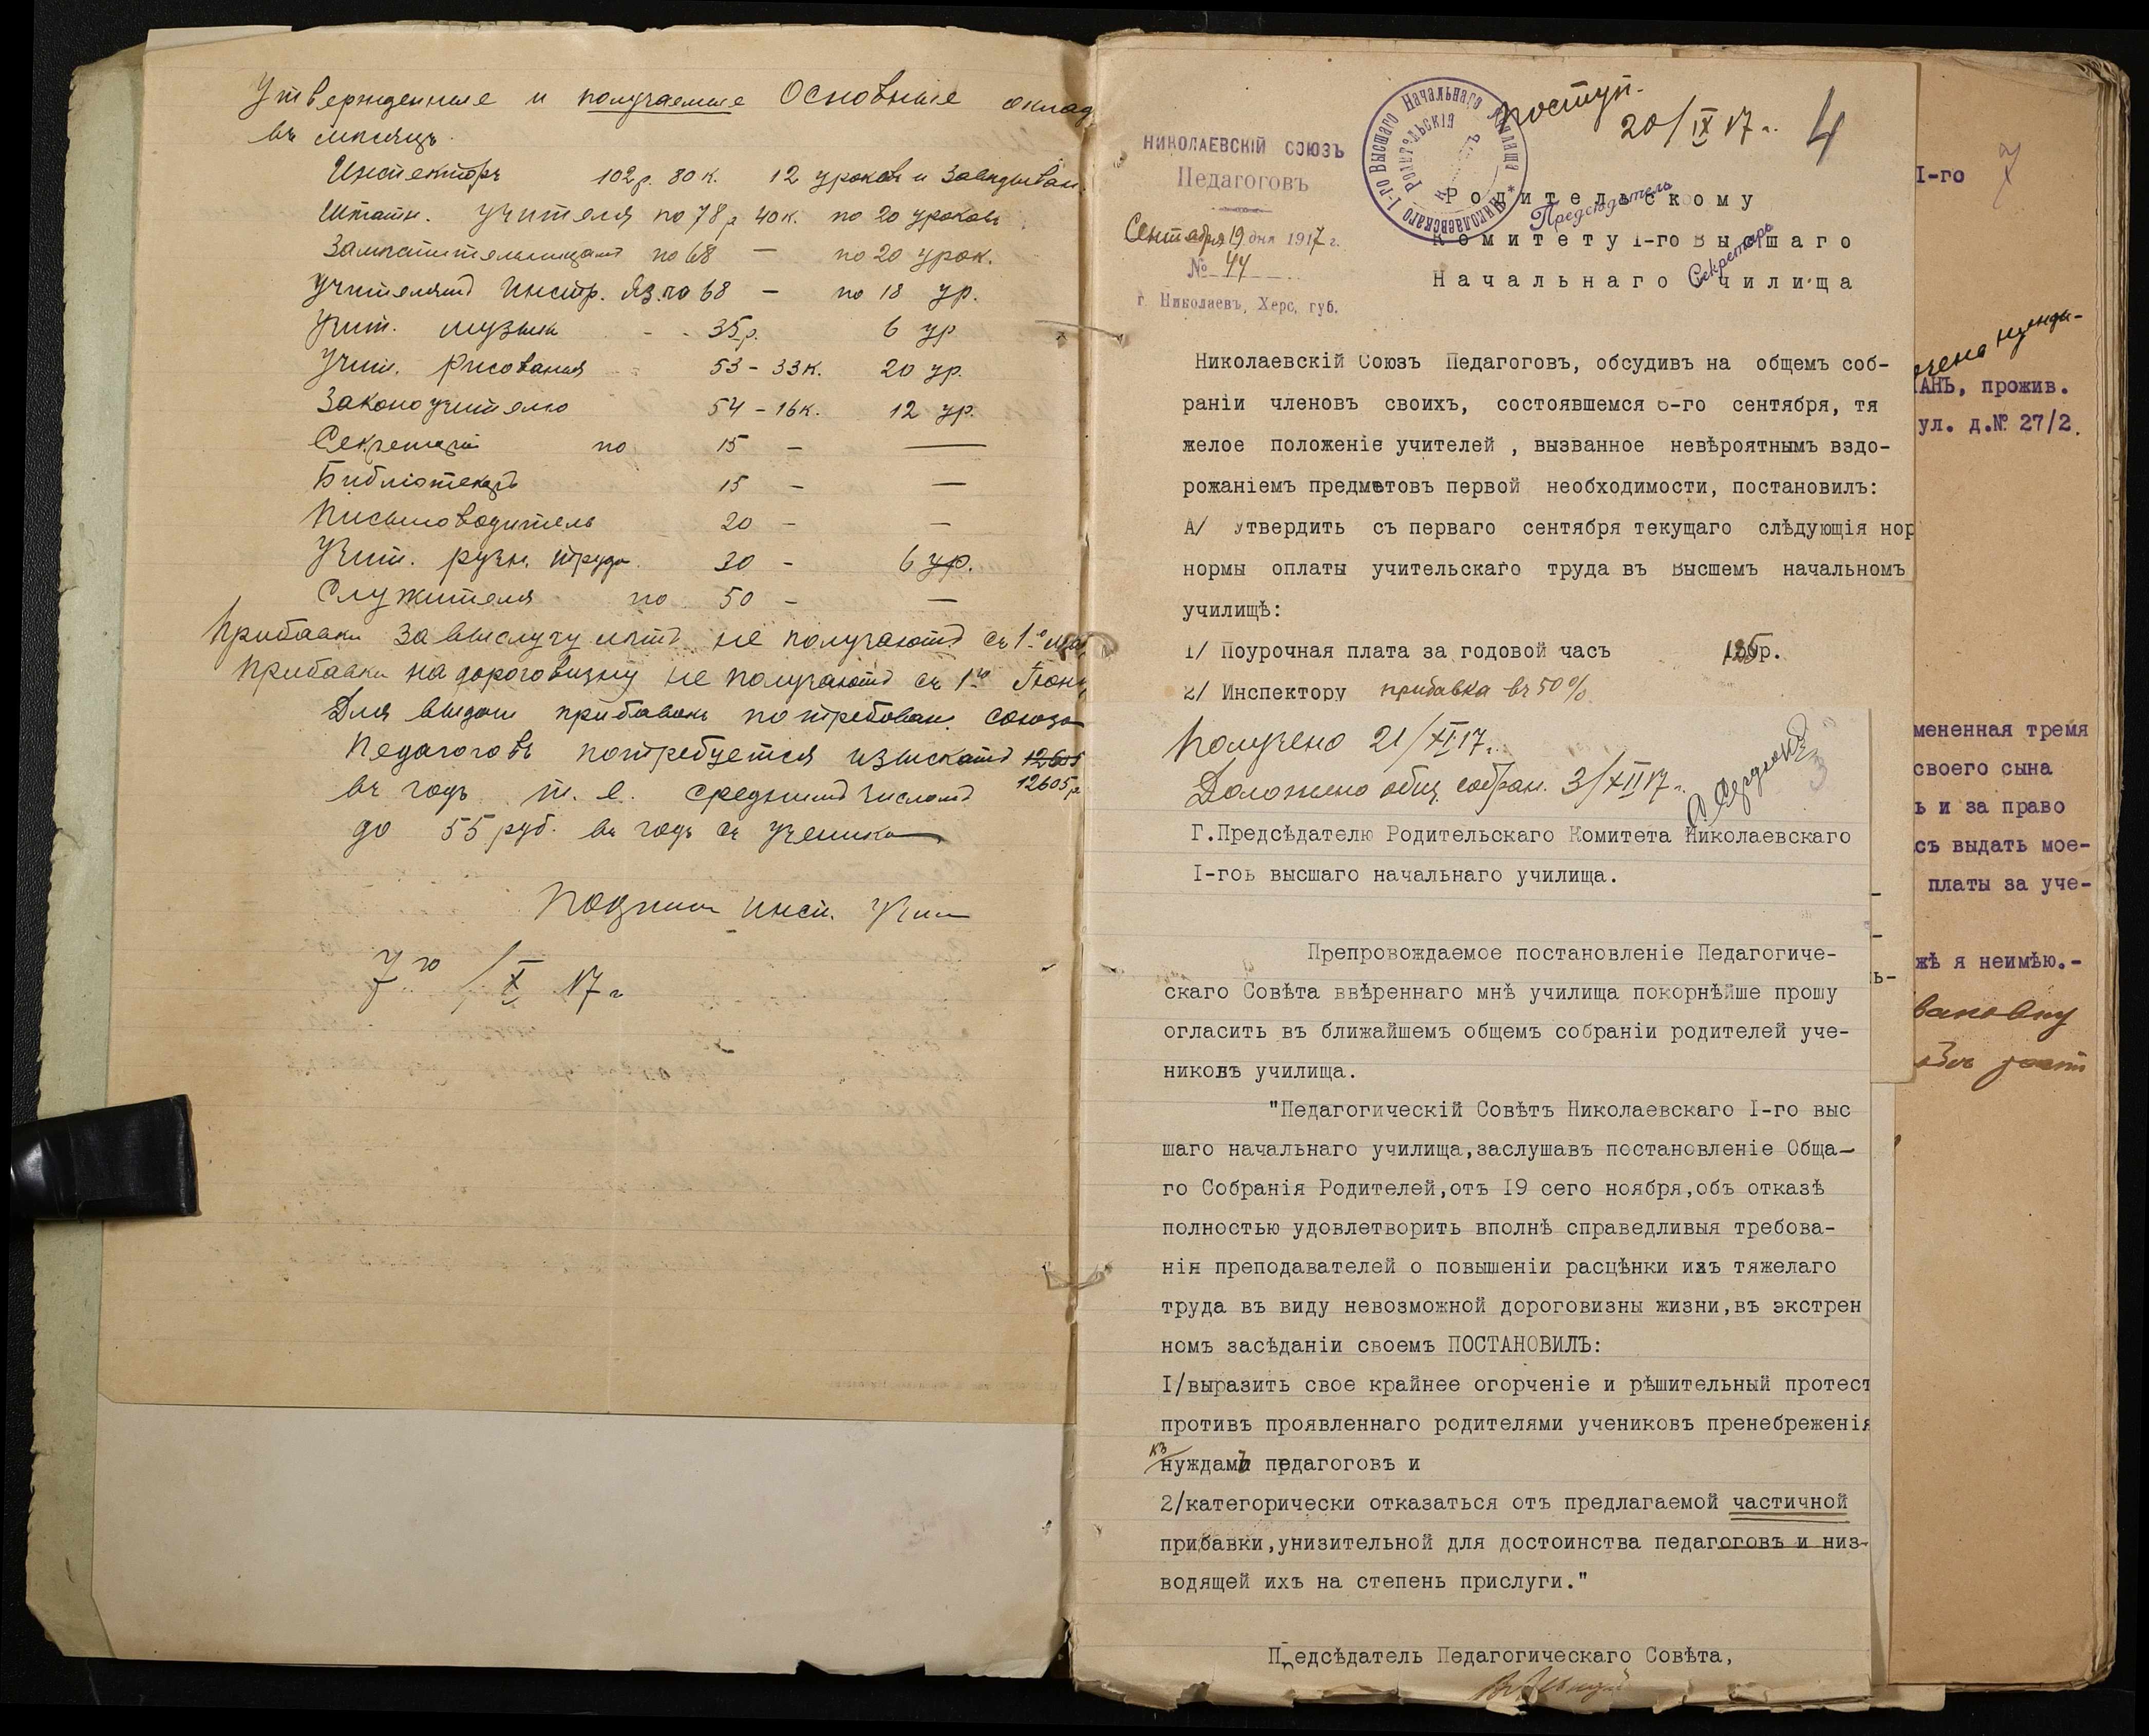 Утвержденные и получаемые Основные оклад
въ мѣсяцъ.
Инспекторъ 102 р. 80 к. 12 уроковъ и завѣдыван.
Штатн. учителя по 78 р 40 к. по 20 уроковъ
Замѣстительницамъ по 68 — по 20 урок.
Учителямъ Иностр. Яз. по 68 — по 18 ур.
Учит. музыки - - 35 р. 6 ур
Учит. Рисованія - 53 - 33 к. 20 ур.
Законоучителю 54 - 16 к. 12 ур.
Секретарь по 15 - —
Библіотекарь 15 - —
Письмоводитель 20 - —
Учит. ручн. труда. 30 - 6 ур.
Служителя по 50 - —
Прибавки за выслугу лѣтъ не получаютъ съ 1-го
Прибавки на дороговизну не получаютъ съ 1го Іюня
Для выдачи прибавокъ потребован. союза
Педагоговъ потребуется изыскать 12605
12605 р
въ годъ т. е. среднимъ числомъ
до 55 руб. въ годъ съ ученика
Инсп.
7го / X 17 г
Поступ.
20/IX 17 г. 4
НИКОЛАЕВСКІЙ СОЮЗЪ
Педагоговъ
Сентября 19 дня 1917 г.
№ 44
г. Николаевъ, Херс, губ.
Николаевскаго 1-го Высшаго Начальнаго Училища
Родительскій
Предсѣдатель
Секретарь
Родительскому
Комитету I-го Высшаго
Начальнаго Училища
Николаевскій Союзъ Педагоговъ, обсудивъ на общемъ соб-
раніи членовъ своихъ, состоявшемся 6-го сентября, тя
желое положеніе учителей , вызванное невѣроятнымъ вздо-
рожаніемъ предметовъ первой необходимости, постановилъ:
А/ Утвердить съ перваго сентября текущаго слѣдующія нор
нормы оплаты учительскаго труда въ Высшемъ начальномъ
училищѣ:
1/ Поурочная плата за годовой часъ р.
2/ Инспектору прибавка въ 50%
Получено 21/XI 17 г.
Доложено общ. собран. 3/XII 17 г. 3
Г.Предсѣдателю Родительскаго Комитета Николаевскаго
I-гоь высшаго начальнаго училища.
Препровождаемое постановленіе Педагогиче-
скаго Совѣта ввѣреннаго мнѣ училища покорнѣйше прошу
огласить въ ближайшемъ общемъ собраніи родителей уче-
никовъ училища.
"Педагогическій Совѣтъ Николаевскаго I-го выс
шаго начальнаго училища,заслушавъ постановленіе Обща—
го Собранія Родителей,отъ I9 сего ноября,объ отказѣ
полностью удовлетворить вполнѣ справедливыя требова-
нія преподавателей о повышеніи расцѣнки ихъ тяжелаго
труда въ виду невозможной дороговизны жизни,въ экстрен
номъ засѣданіи своемъ ПОСТАНОВИЛЪ:
I/выразить свое крайнее огорченіе и рѣшительный протест
противъ проявленнаго родителями учениковъ пренебреженія
къ
нуждамъ педагоговъ и
2/категорически отказаться отъ предлагаемой частичной
прибавки,унизительной для достоинства педагоговъ и низ-
водящей ихъ на степень прислуги."
Предсѣдатель Педагогическаго Совѣта,
I-го 7
АНЪ, прожив.
ул. д.№ 27/2.
мененная тремя
своего сына
ь и за право
сь выдать мое-
платы за уче-
жѣ я неимѣю.-
ь-